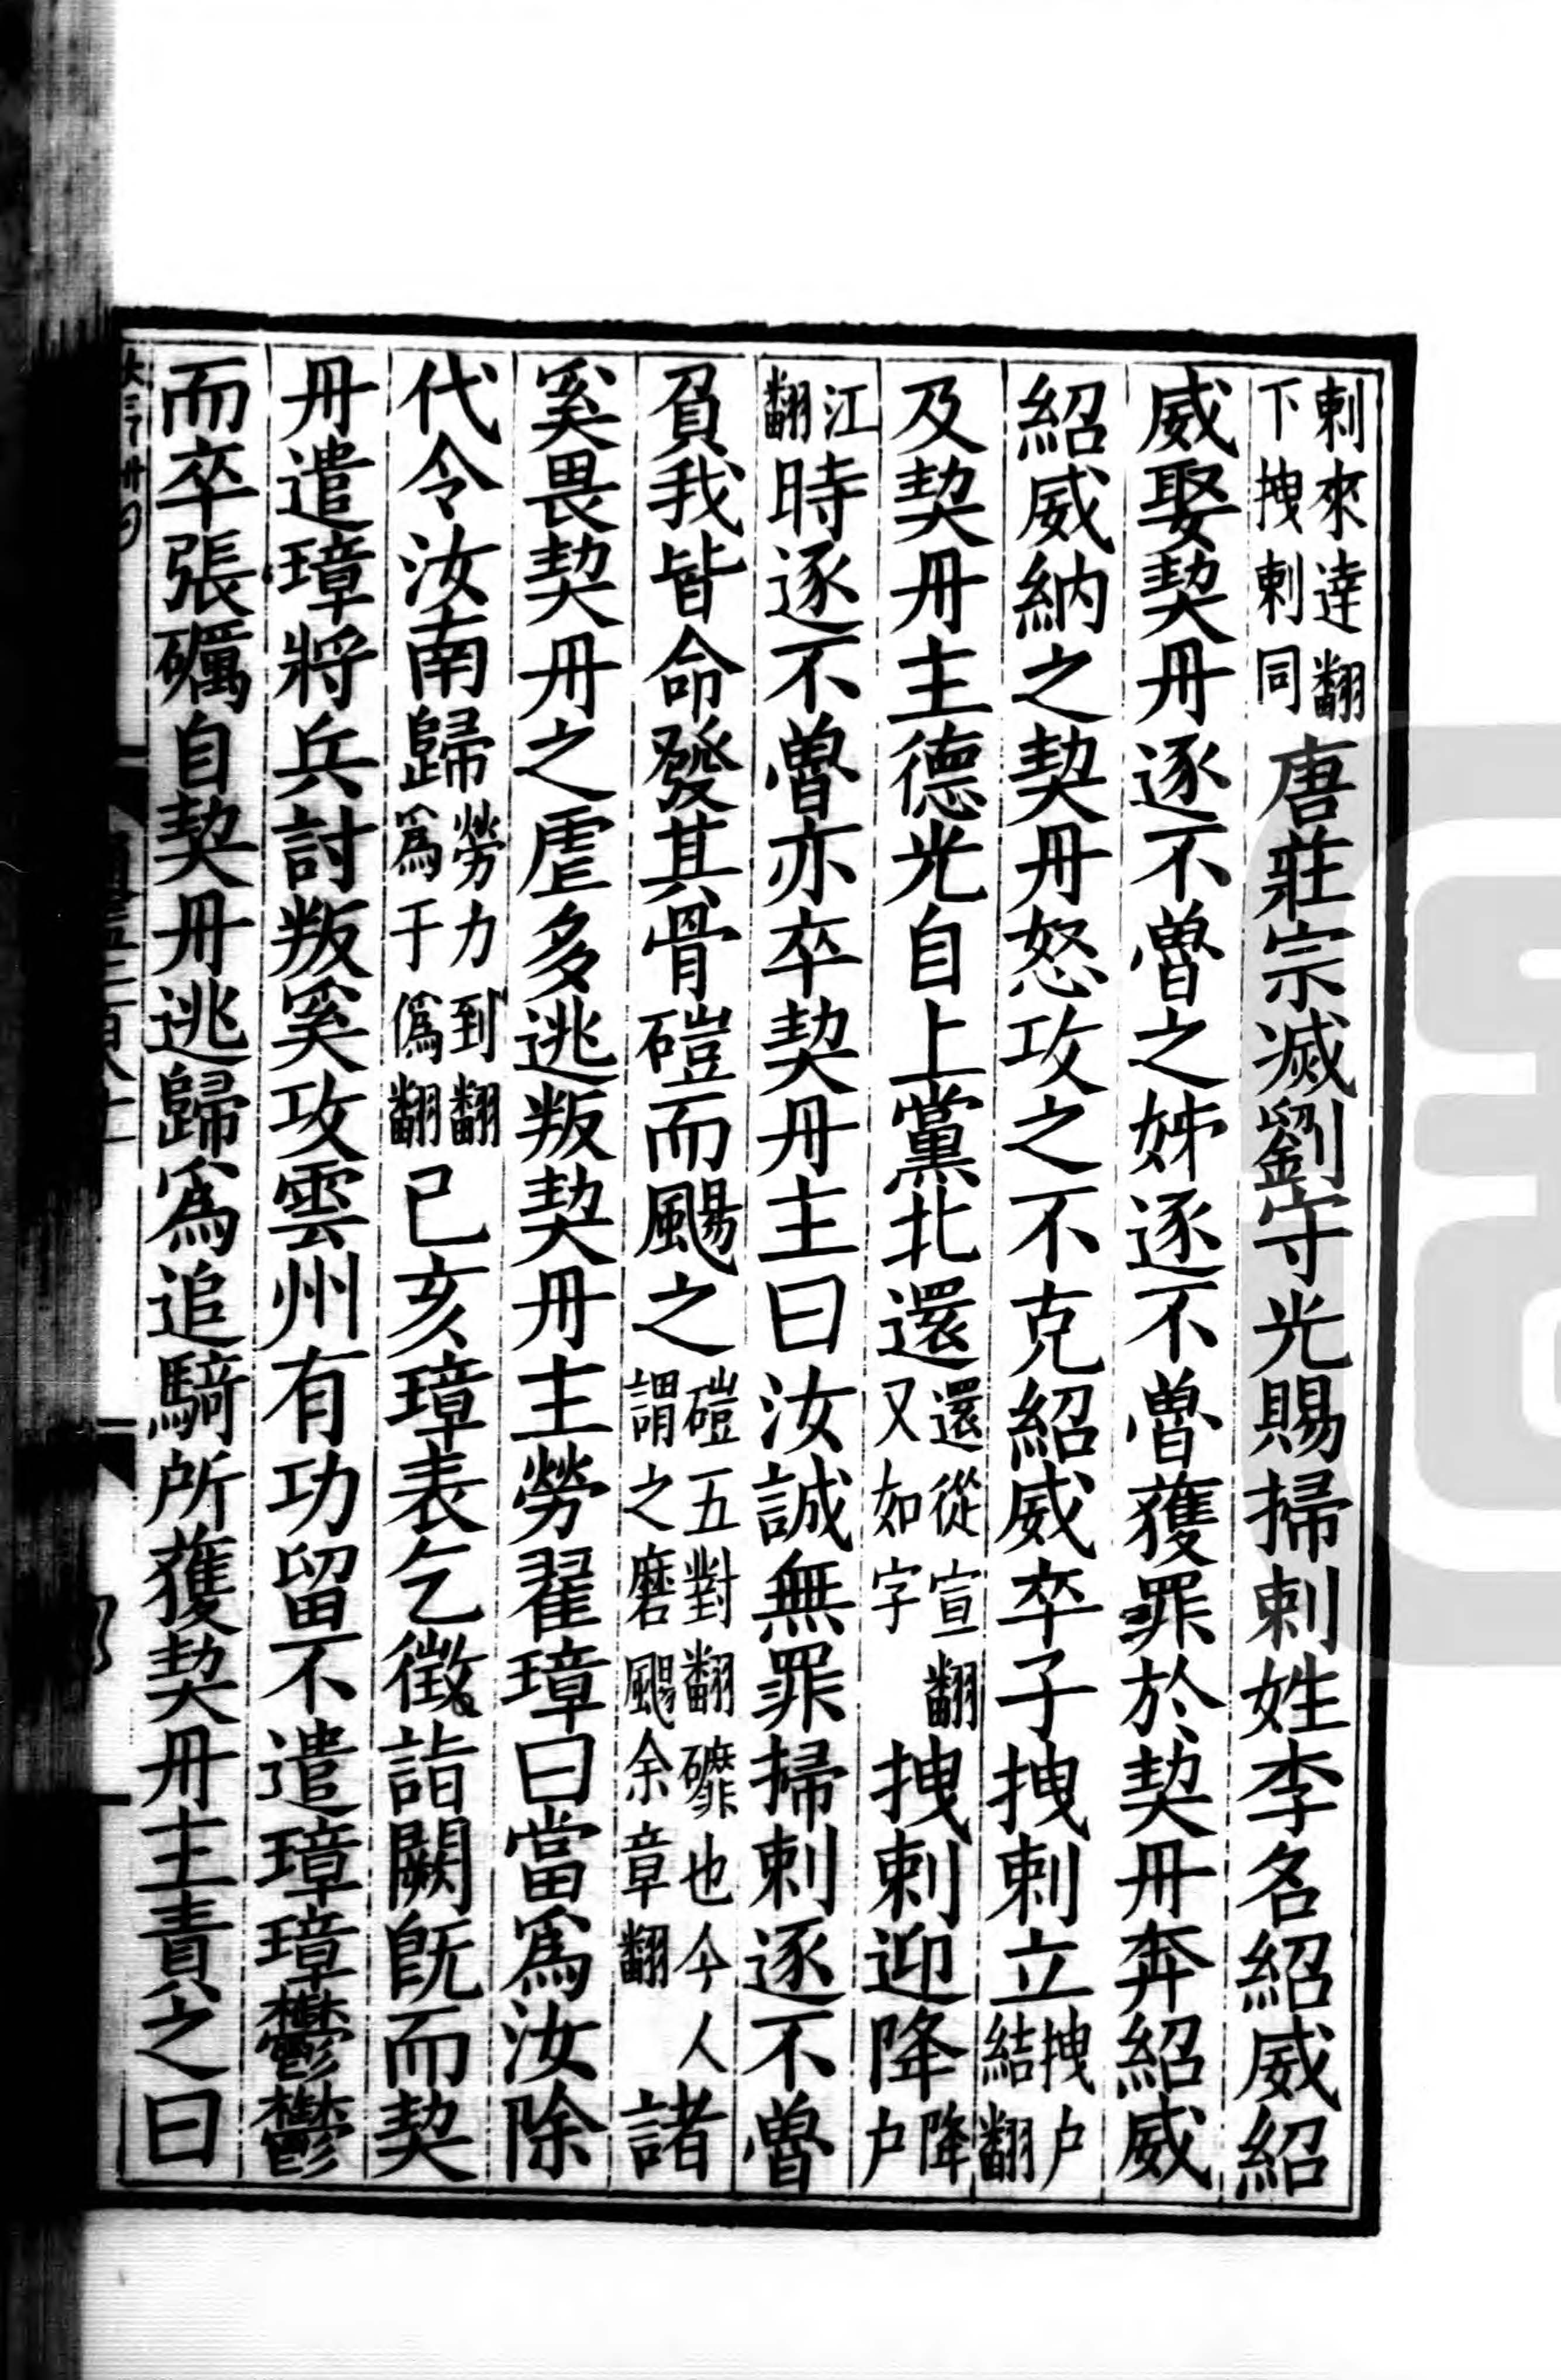 剌來達翻下拽剌同唐莊宗滅劉守光賜掃剌姓李名紹威紹
威娶契丹逐不魯之姊逐不魯獲罪於契丹奔紹威
紹威納之契丹怒攻之不克紹威卒子拽剌立拽户結翻
及契丹主德光自上黨北還還從宣翻又如字拽剌迎降降户
江翻時逐不魯亦卒契丹主曰汝誠無罪掃剌逐不魯
負我皆命發其骨磑而颺之磑五對翻䃺也今人謂之磨颺余章翻諸
奚畏契丹之虐多逃叛契丹主勞翟璋曰當爲汝除
代令汝南歸勞力到翻爲于僞翻己亥璋表乞徵詣闕既而契
丹遣璋將兵討叛奚攻雲州有功留不遣璋璋鬱鬱
而卒張礪自契丹逃歸爲追騎所獲契丹主責之曰